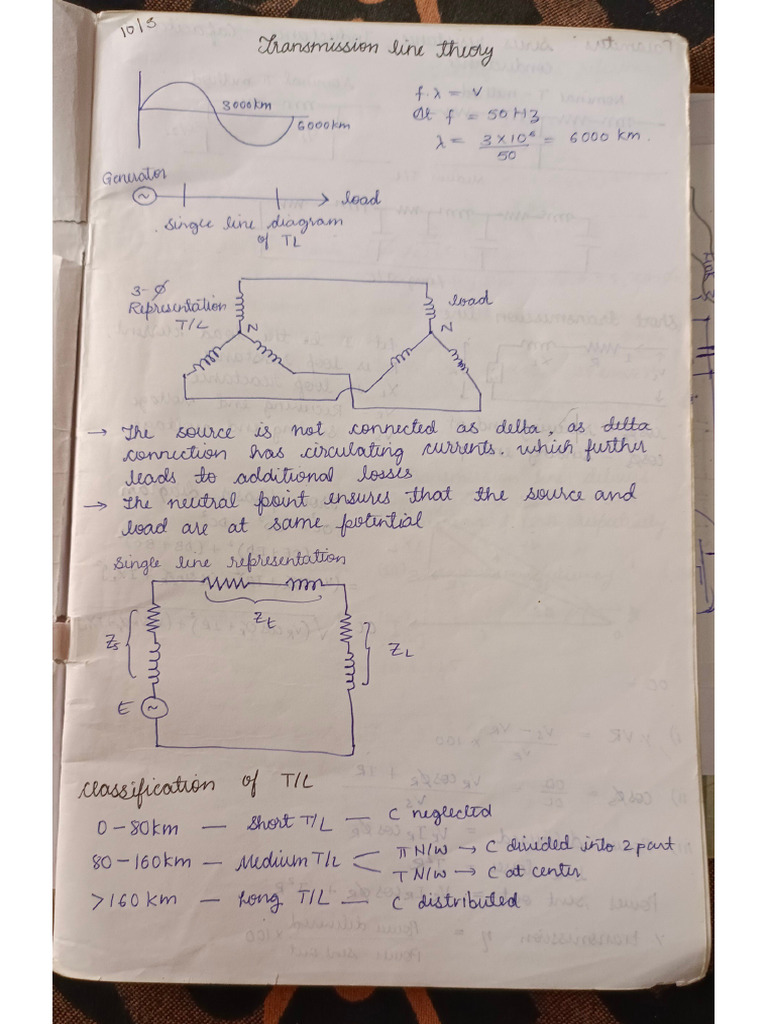 10/3
Transmission line theory
3000km
6000km
f.λ = v
At f = 50Hz
λ = 3×10⁸/50 = 6000 km.
Generator
~
load
Single line diagram
of TL
3-Ø
Representation
T/L
N
load
N
→ The source is not connected as delta, as delta
connection has circulating currents. which further
leads to additional losses
→ The neutral point ensures that the source and
load are at same potential
Single line representation
Zt
Zs
ZL
E ~
Classification of T/L
0-80km — Short T/L — C neglected
80-160km — Medium T/L < π N/W → C divided into 2 part
T N/W → C at center
>160 km — Long T/L — C distributed